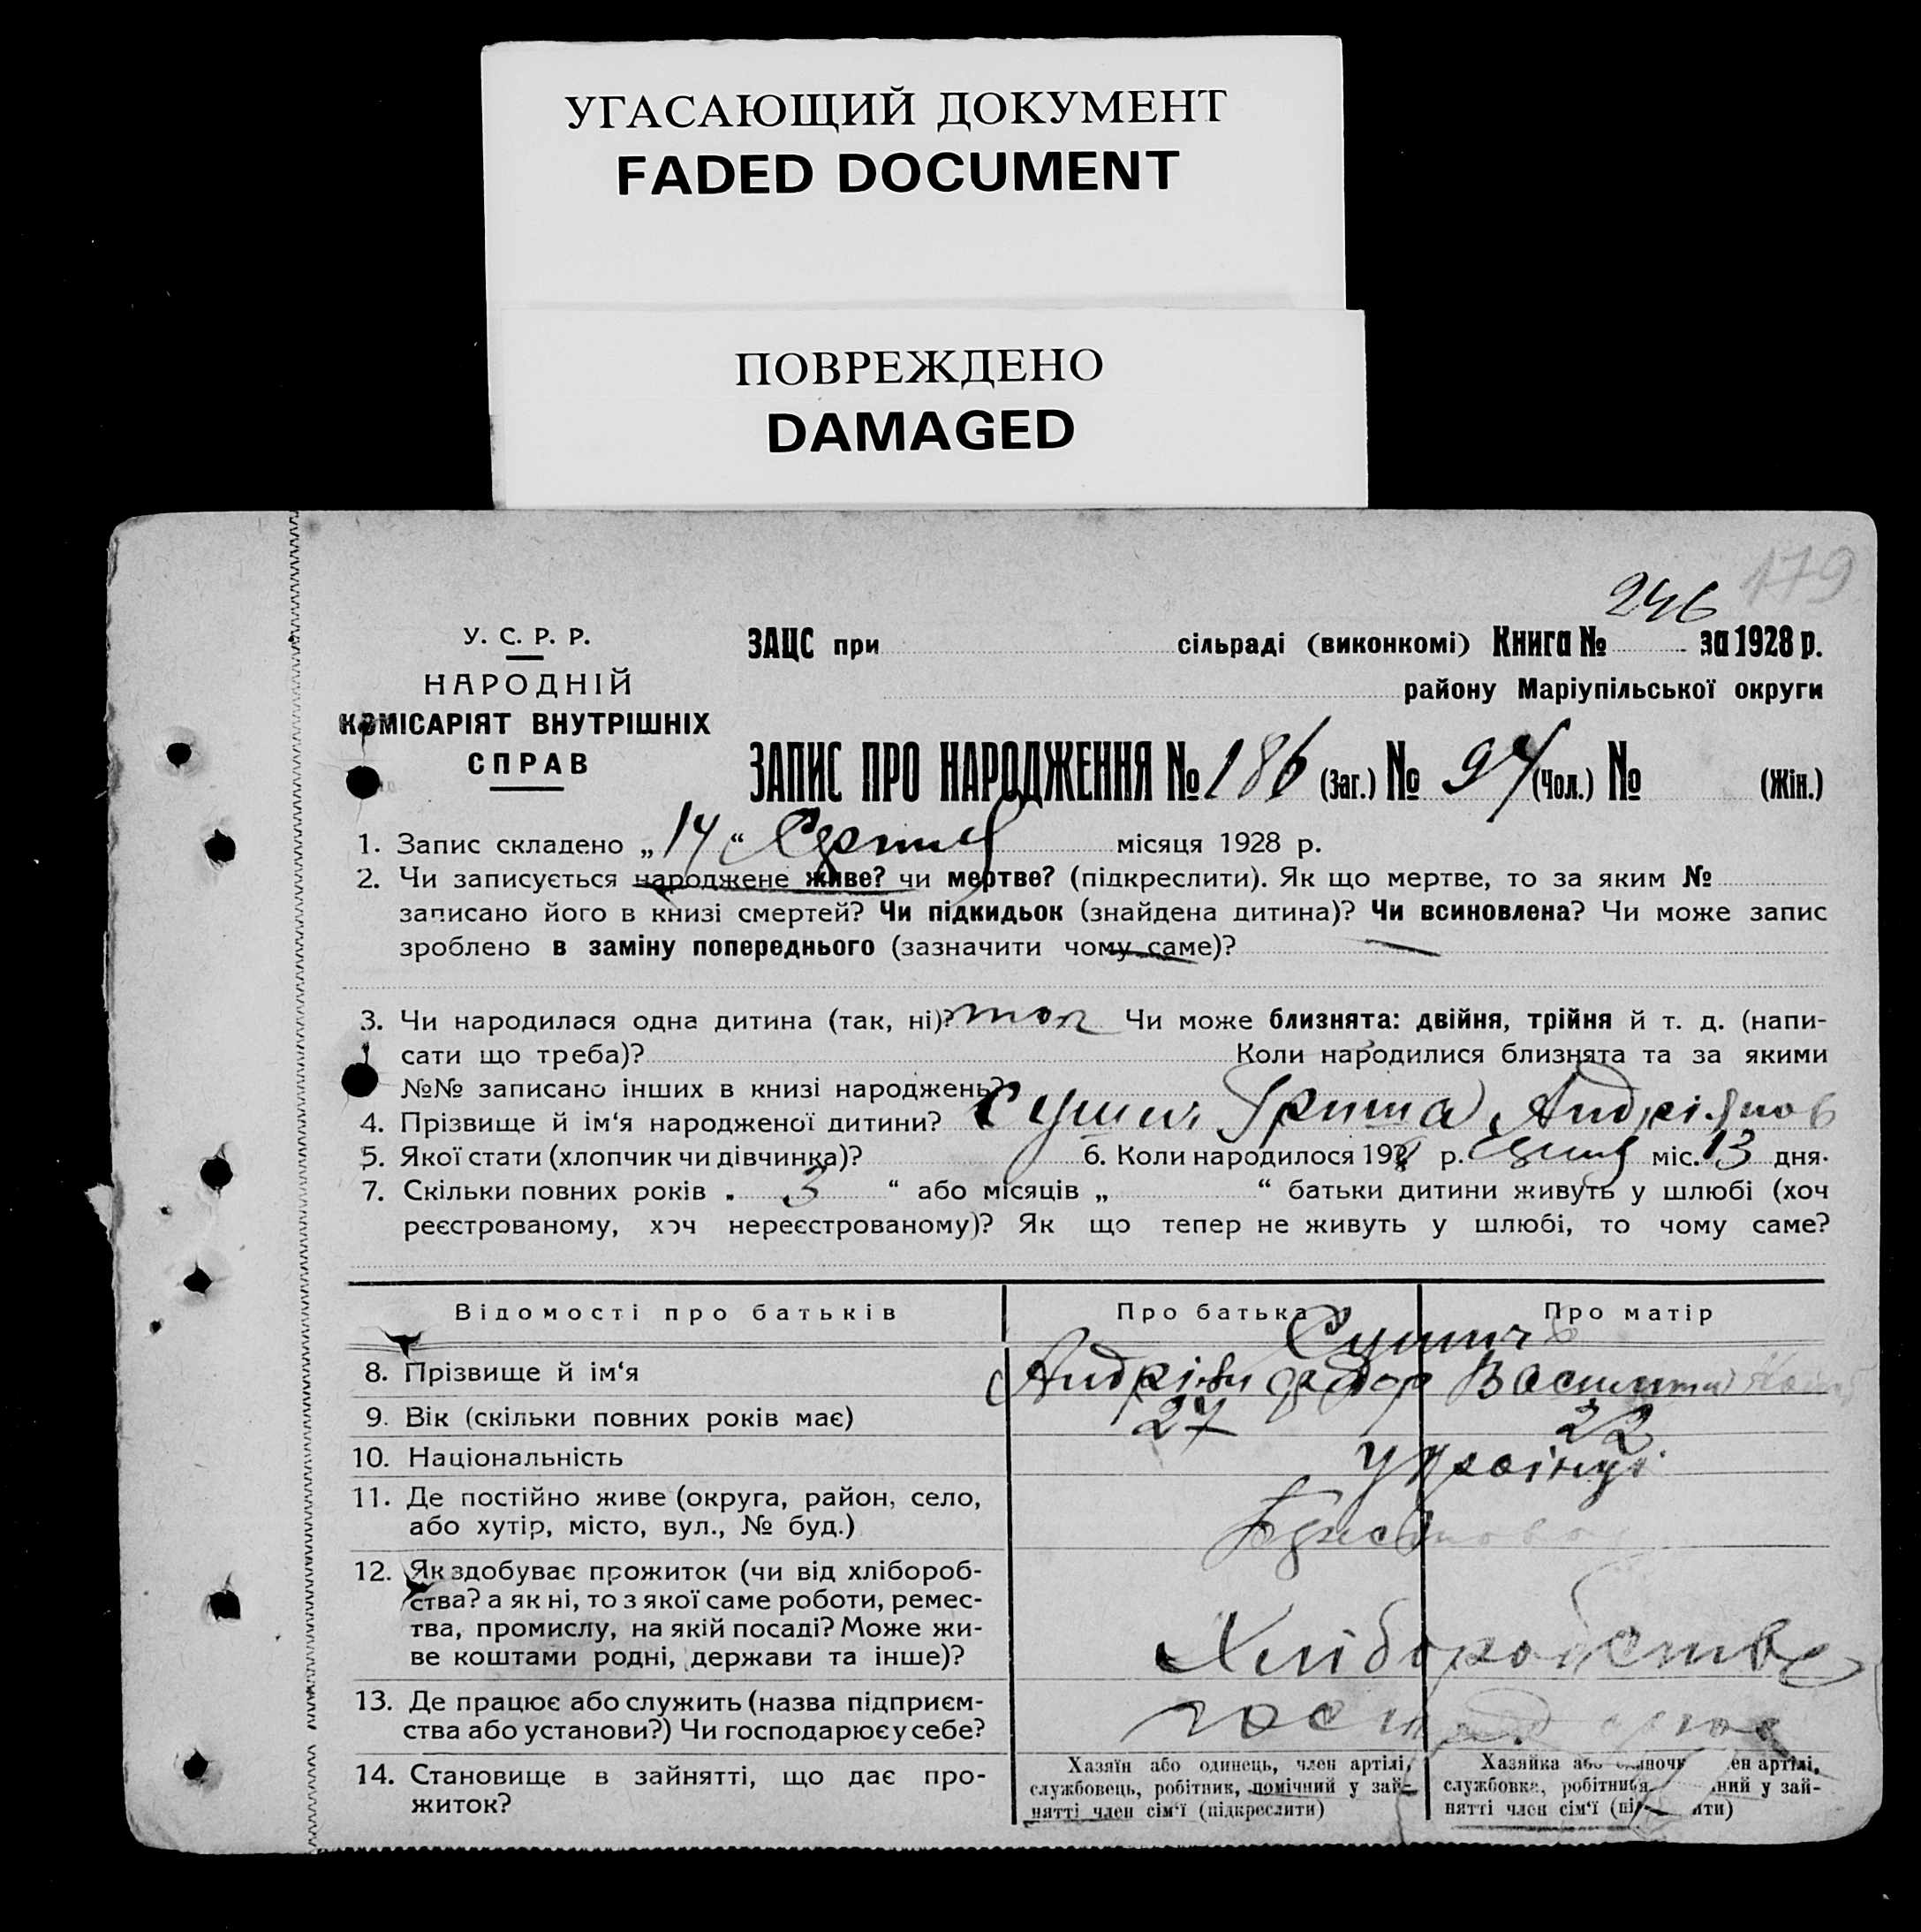 УГАСАЮЩИЙ ДОКУМЕНТ
FADED DOCUMENT
ПОВРЕЖДЕНО
DAMAGED
179
246
У. С. Р. Р.
НАРОДНІЙ
КОМІСАРІЯТ ВНУТРІШНІХ
СПРАВ
ЗАЦС при сільраді (виконкомі) Книга № за 1928 р.
району Маріупільської округи
ЗАПИС ПРО НАРОДЖЕННЯ № 186 (Заг.) № 94 (Чол.) № (Жін.)
1. Запис складено „ 14 “ місяця 1928 р.
2. Чи записується народжене живе? чи мертве? (підкреслити). Як що мертве, то за яким №
записано його в книзі смертей? Чи підкидьок (знайдена дитина)? Чи всиновлена? Чи може запис
зроблено в заміну попереднього (зазначити чому саме)?
3. Чи народилася одна дитина (так, ні)? так Чи може близнята: двійня, трійня й т. д. (напи-
сати що треба)? Коли народилися близнята та за якими
№№ записано інших в книзі народжень?
4. Прізвище й ім‘я народженої дитини? Гриша
5. Якої стати (хлопчик чи дівчинка)? 6. Коли народилося 1928 р. міс. 13 дня.
7. Скільки повних років „ 3 “ або місяців „ “ батьки дитини живуть у шлюбі (хоч
реєстрованому, хоч нереєстрованому)? Як що тепер не живуть у шлюбі, то чому саме?
Відомості про батьків Про батька Про матір
8. Прізвище й ім‘я
9. Вік (скільки повних років має) 27 22
10. Національність українці
11. Де постійно живе (округа, район, село,
або хутір, місто, вул., № буд.)
12. Як здобуває прожиток (чи від хлібороб-
ства? а як ні, то з якої саме роботи, ремес-
тва, промислу, на якій посаді? Може жи-
ве коштами родні, держави та інше)?
Хліборобства
13. Де працює або служить (назва підприєм-
ства або установи?) Чи господарює у себе?
14. Становище в зайнятті, що дає про-
житок?
Хазяїн або одинець, член артілі,
службовець, робітник, помічний у зай-
нятті член сім‘ї (підкреслити)
Хазяйка або ен артілі,
службовка, робітниця ний у зай-
нятті член сім‘ї